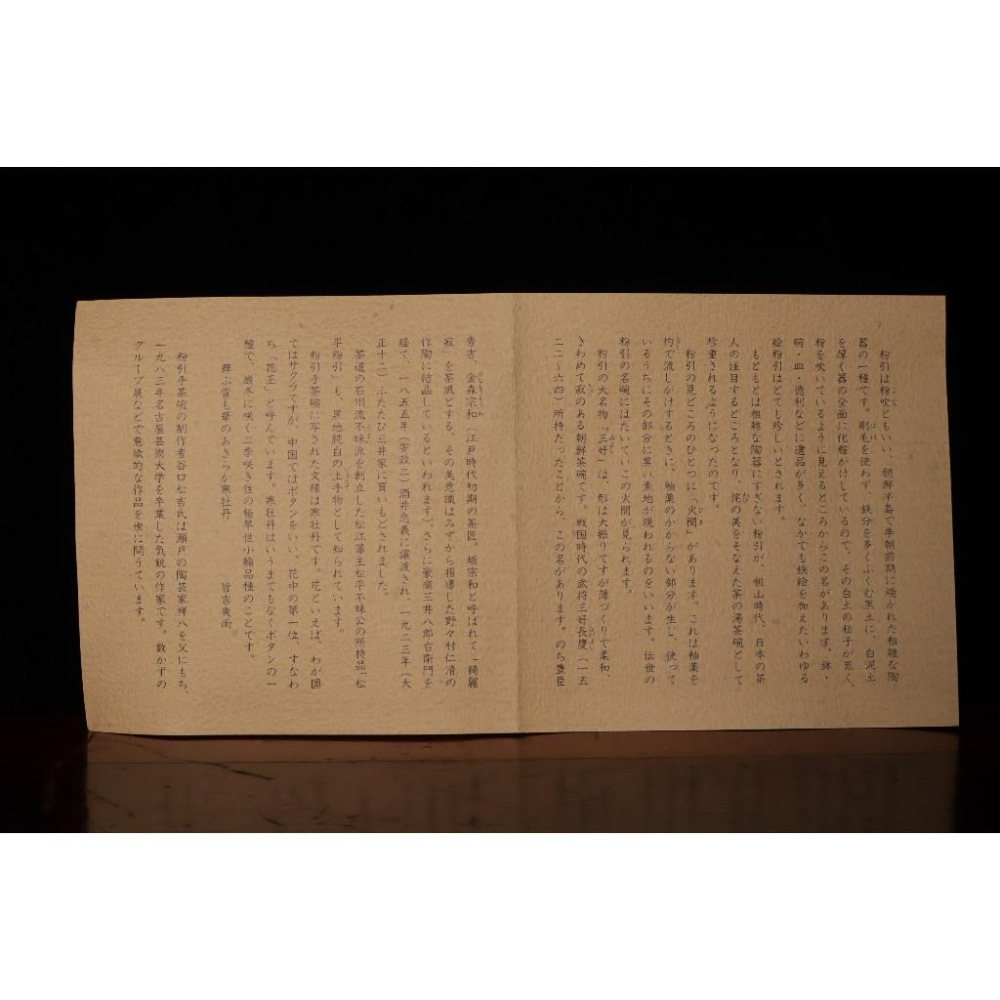 粉引は粉吹ともいい、朝鮮半島で李朝前期に焼かれた粗雑な陶
器の一種です。刷毛を使わず、鉄分を多くふくむ黒土に、白泥土
を厚く器の全面に化粧がけしているので、その白土の粒子が荒く、
粉を吹いているように見えるところからこの名があります。鉢・
碗・皿・徳利などに遺品が多く、なかでも鉄絵を加えたいわゆる
絵粉引はとても珍しいとされます。
もともとは粗雑な陶器にすぎない粉引が、桃山時代、日本の茶
人の注目するところとなり、侘の美をそなえた茶の湯茶碗として
珍重されるようになったのです。
粉引の見どころのひとつに「火間」があります。これは釉薬を
杓で流しがけするときに、釉薬のかからない部分が生じ、使って
いるうちにその部分に黒い素地が現われるのをいいます。伝世の
粉引の名碗にはたいていこの火間が見られます。
粉引の大名物「三好」は、形は大振りですが薄づくりで柔和、
きわめて寂のある朝鮮茶碗です。戦国時代の武将三好長慶(一五
二二〜六四)所持だったことから、この名があります。のち豊臣
秀吉、金森宗和(江戸時代初期の茶匠、姫宗和と呼ばれて「綺麗
寂」を茶風とする、その美意識はみずから指導した野々村仁清の
作陶に結晶しているといわれます)、さらに豪商三井八郎右衛門を
経て、一八五五年(安政二)酒井忠義に譲渡され、一九二三年(大
正十二)ふたたび三井家に買いもどされました。
茶道の石州流不昧派を創立した松江藩主松平不昧公の所持品「松
平粉引」も、黒地純白の上手物として知られています。
粉引手茶碗に写された文様は寒牡丹です。花といえば、わが国
ではサクラですが、中国ではボタンをいい、花中の第一位、すなわ
ち「花王」と呼んでいます。寒牡丹はいうまでもなくボタンの一
種で、厳冬に咲く二季咲き性の極早但小輪品種のことです。
舞ふ雪も夢のあきらか寒牡丹 皆吉爽雨
粉引手茶碗の制作者谷口松吉氏は瀬戸の陶芸家禅八を父にもち、
一九八二年名古屋芸術大学を卒業した気鋭の作家です。数かずの
グループ展などで意欲的な作品を世に問うています。